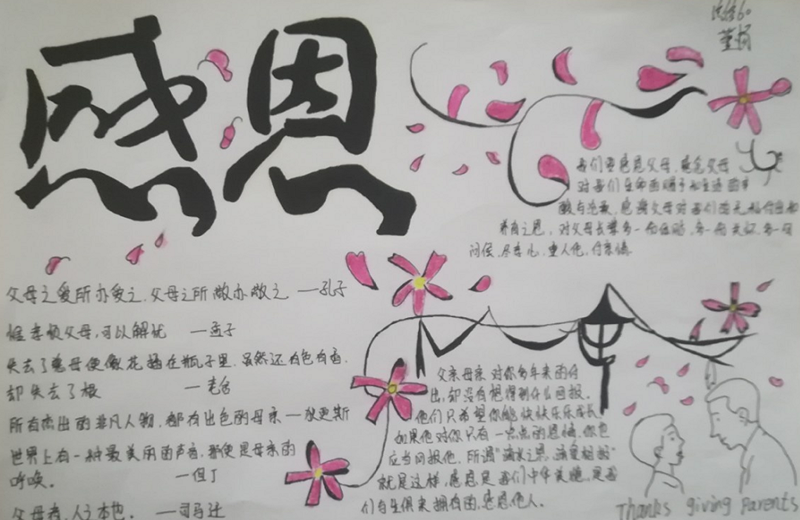 感恩
父母之爱所亦爱之,父母之所敬亦敬之 —孔子
惟孝顺父母,可以解忧 —孟子
失去了慈母便像花插在瓶子里,虽然还有色有香,
却失去了根 —老舍
所有杰出的非凡人物,都有出色的母亲—狄更斯
世界上有一种最美丽的声音,那便是母亲的
呼唤。 —但丁
父母者,人之本也。 —司马迁
我们要感恩父母,感念父母
对我们生命的赐予和生活的
养育之恩,对父母长辈多一份
问候,尽孝心,重人伦,行亲情
父亲母亲对你多年来的付
出,却没有想得到什么回报。
他们只希望你能快快乐乐成长
如果他对你只有一点点的恩情,你也
应当回报他,所谓"滴水之恩,涌泉相报"
就是这样,感恩是我们中华美德,是我
们与生俱来拥有的,感恩他人。
Thanks giving Parents